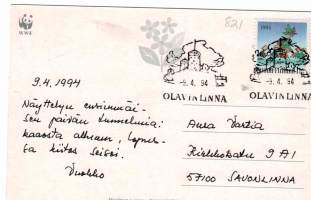 WWF
821
1994
-9.4.94
-9.4.94
OLAVINLINNA
OLAVINLINNA
9.4.1994
Näyttelyn ensimmäi-
sen päivän tunnelmia:
kaaosta alkuun, lopul-
ta kiitos seisoi.
Tuukko
Anna Vartia
Kirkkokatu 9 A1
57100 SAVONLINNA